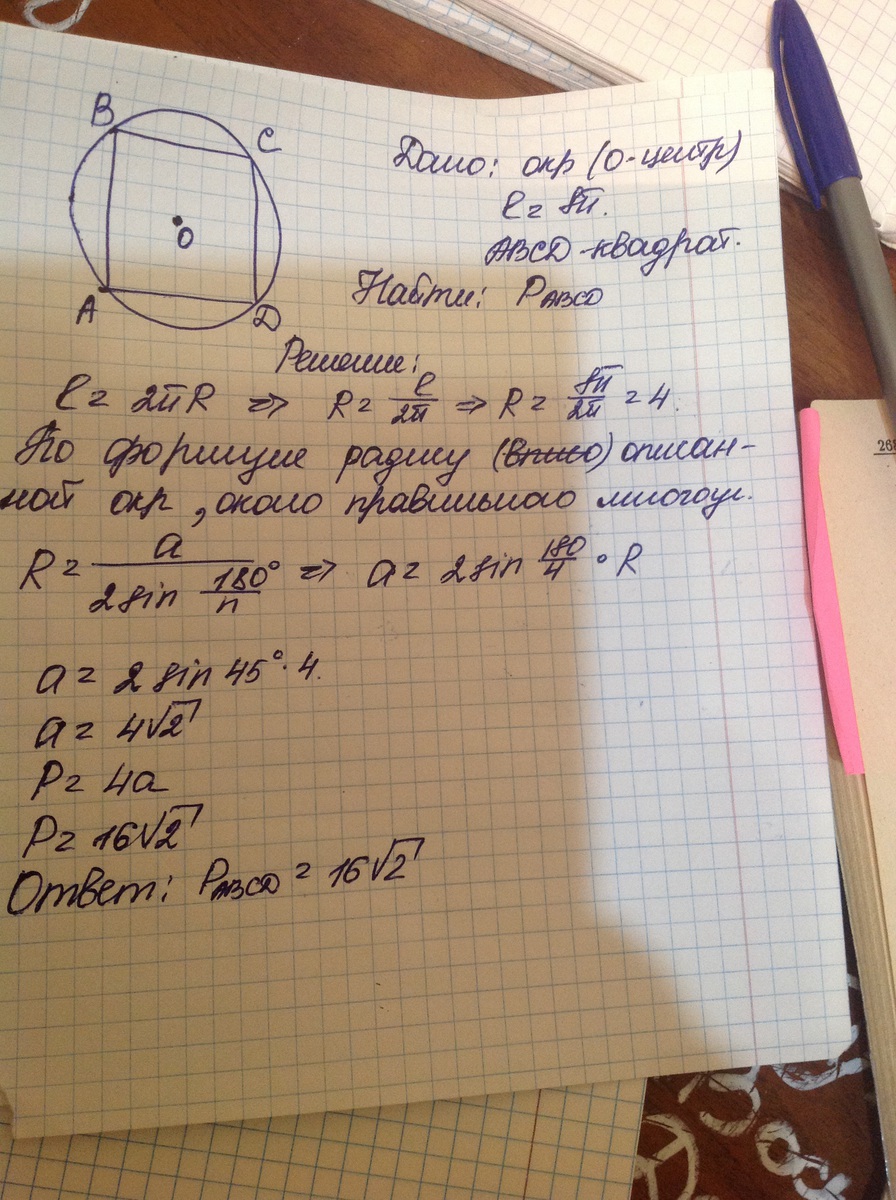 B
C
O
A
D
Дано: окр (О-центр)
ℓ = 8π.
ABCD-квадрат.
Найти: P_ABCD
Решение:
ℓ = 2πR ⇒ R = ℓ/2π ⇒ R = 8π/2π = 4.
По формуле радиу (впис) описан-
ной окр, около правильного многоуг.
R = a/(2 sin 180°/n) ⇒ a = 2 sin 180/4 · R
a = 2 sin 45° · 4.
a = 4√2
P = 4a
P = 16√2
Ответ: P_ABCD = 16√2
268